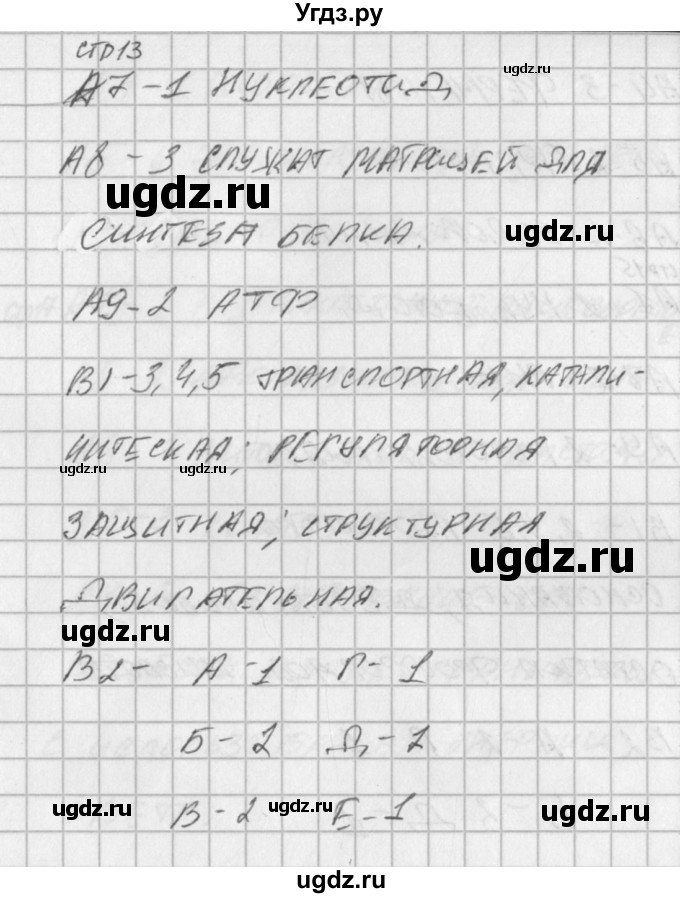 Угдз.ру
стр13
А7-1 НУКЛЕОТИД
ugdz.ru
А8-3 СЛУЖАТ МАТРИЦЕЙ ДЛЯ
ugdz.ru
СИНТЕЗА БЕЛКА.
ugdz.ru
А9-2 АТФ
В1-3,4,5 ТРАНСПОРТНАЯ, КАТАЛИ-
ИТЕСКАЯ; РЕГУЛЯТОРНАЯ
ugdz.ru ugdz.ru
ЗАЩИТНАЯ; СТРУКТУРНАЯ
ugdz.ru
ДВИГАТЕЛЬНАЯ.
ugdz.ru
В2- А-1 Г-1
Б-2 Д-2
В-2 Е-1
ugdz.ru ugdz.ru ugdz.ru
ugdz.ru